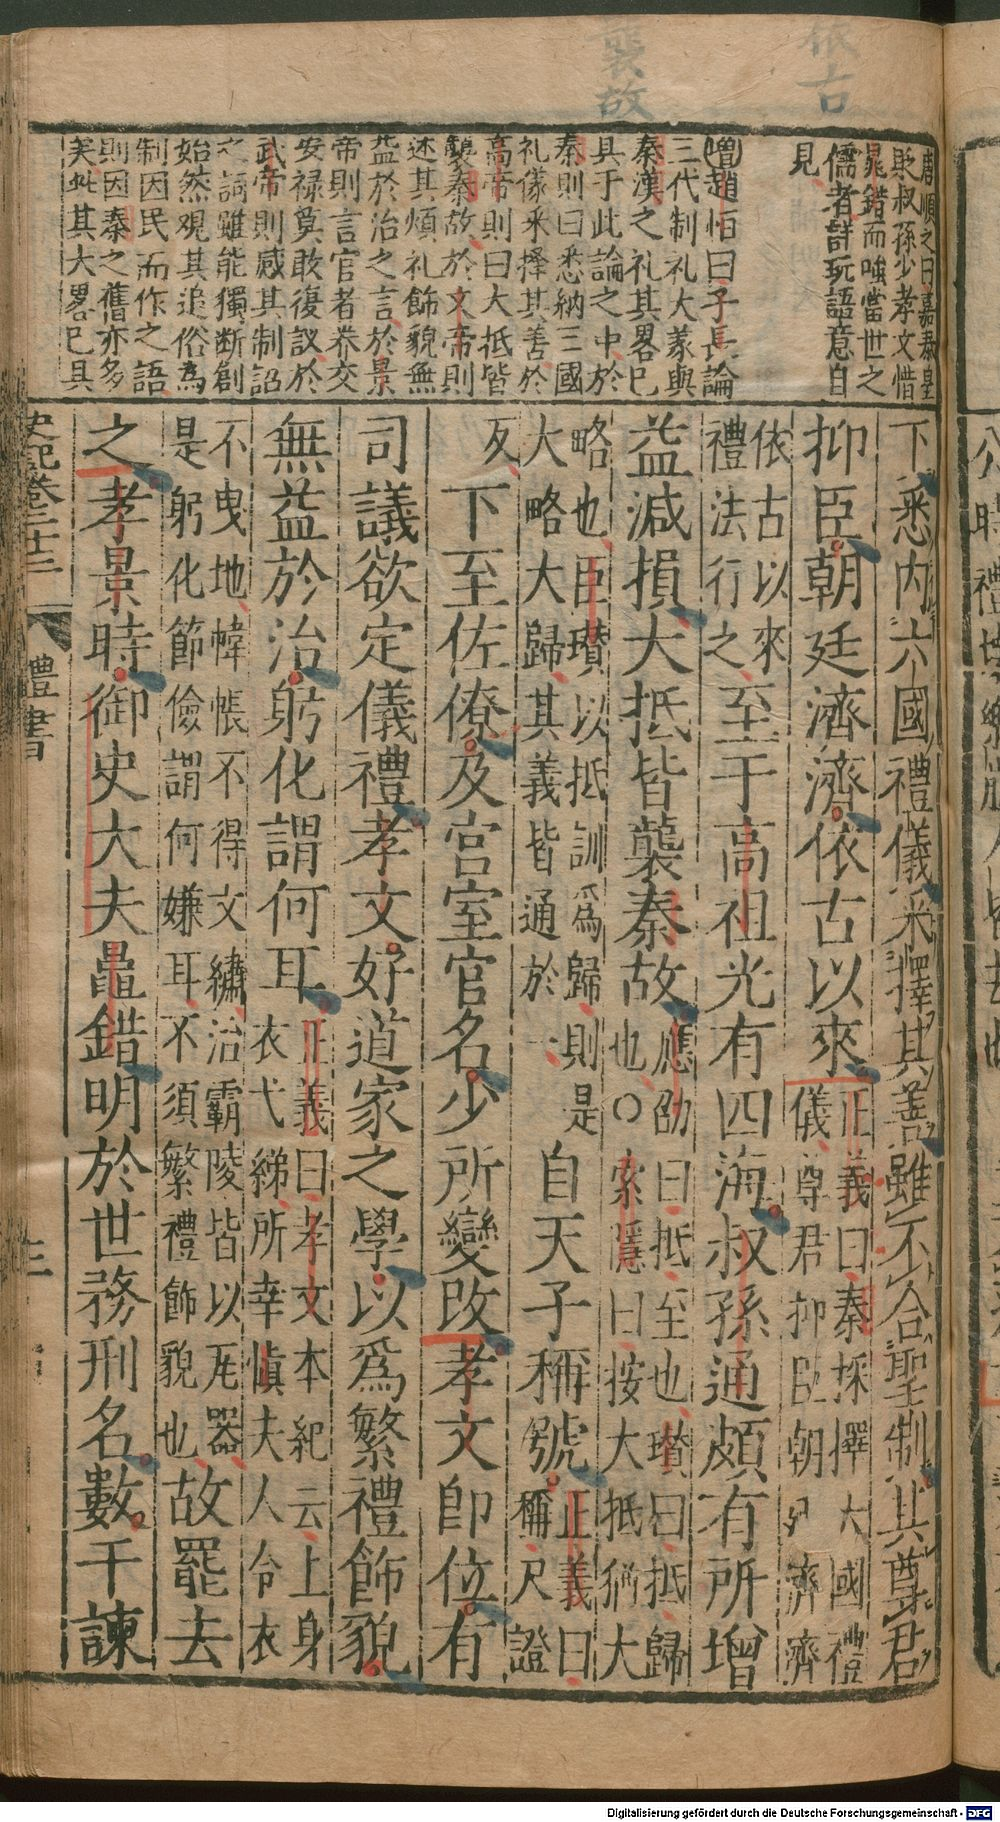 依古
襲故
周順之曰嘉泰皇
貶叔孫少孝文惜
鼂錯而嗤當世之
儒者詳玩語意自
見
增趙恒曰子長論
三代制礼大義與
秦漢之礼其畧已
具于此論之中於
秦則曰悉納三國
礼儀采擇其善於
高帝則曰大抵皆
襲秦故於文帝則
述其煩礼飾貌無
益於治之言於景
帝則言官者养交
安禄莫敢復議於
武帝則感其制詔
之詞雖能獨斷創
始然观其追俗為
制因民而作之語
則因秦之舊亦多
矣此其大畧已具
下悉内六國禮儀采擇其善雖不合聖制其尊君
抑臣朝廷濟濟依古以來正義曰秦採擇大國禮儀尊君抑臣朝列濟濟
依古以來禮法行之至于高祖光有四海叔孫通頗有所增
益減損大抵皆襲秦故應劭曰抵至也瓚曰抵歸也○索隱曰按大抵猶大
略也臣瓚以抵訓爲歸則是大略大歸其義皆通於一自天子稱號正義曰稱尺證
反下至佐僚及宮室官名少所變改孝文即位有
司議欲定儀禮孝文好道家之學以爲繁禮飾貌
無益於治躬化謂何耳正義曰孝文本紀云上身衣弋綈所幸慎夫人令衣
不曳地幃帳不得文繡治霸陵皆以瓦器是躬化節儉謂何嫌耳不須繁禮飾貌也故罷去
之孝景時御史大夫鼂錯明於世務刑名數干諫
史記卷二十三
禮書
三
Digitalisierung gefördert durch die Deutsche Forschungsgemeinschaft - DFG